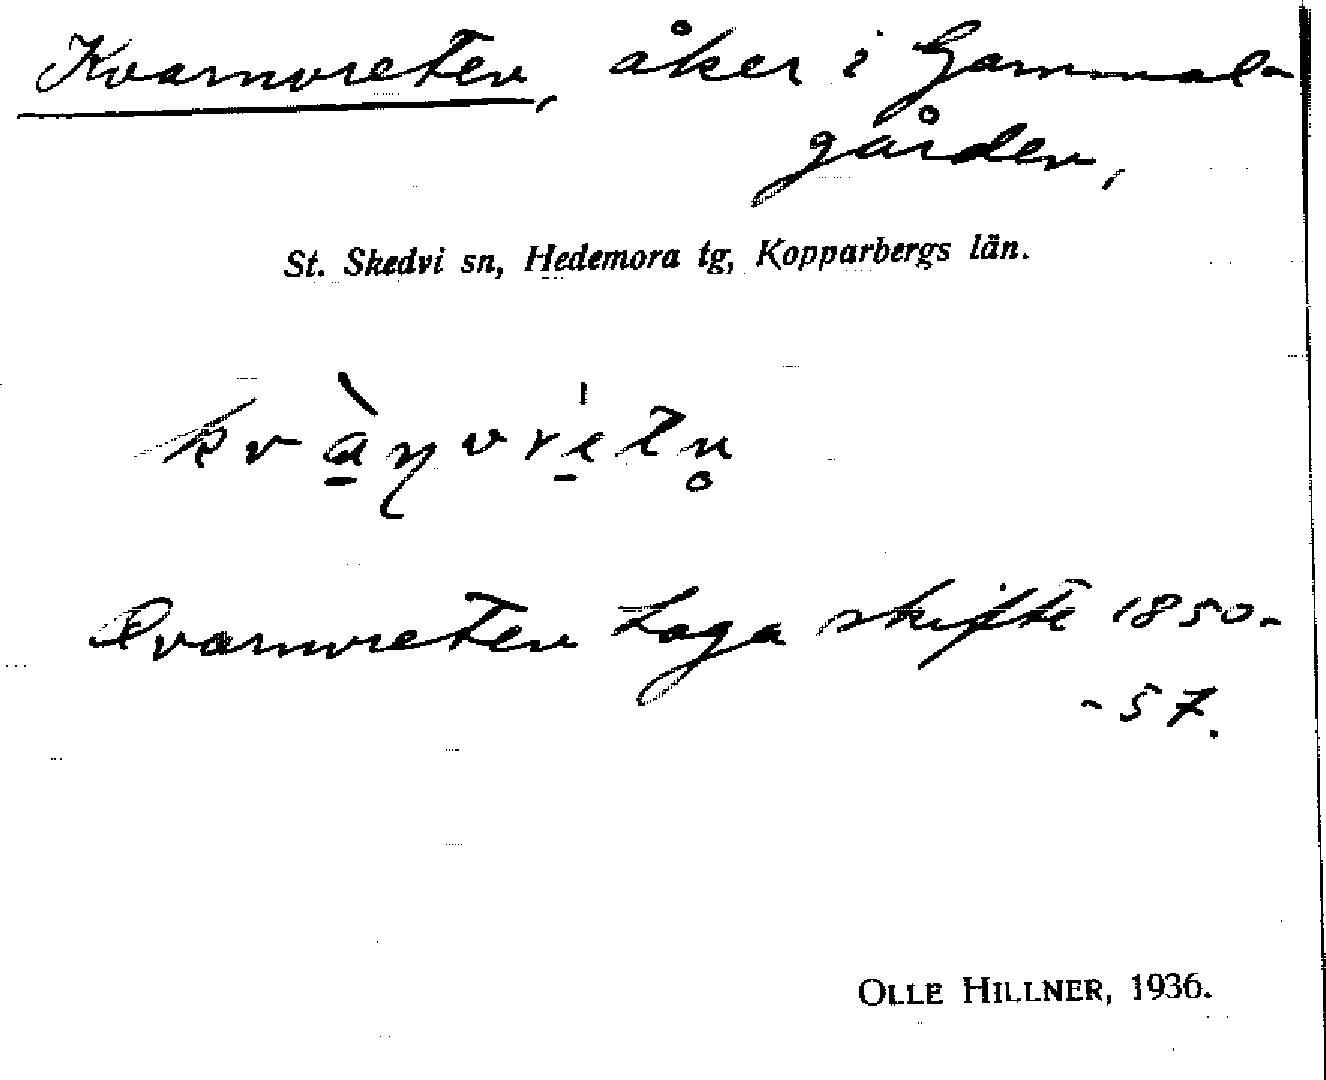 Kvarnvreten, åker i Gammal-
gården,
St. Skedvi sn, Hedemora tg, Kopparbergs län.
kv<u>à</u>ɳvr<u>e</u>̍tn̥
Qvarnvreten Laga skifte 1850-
-57.
OLLE HILLNER, 1936.